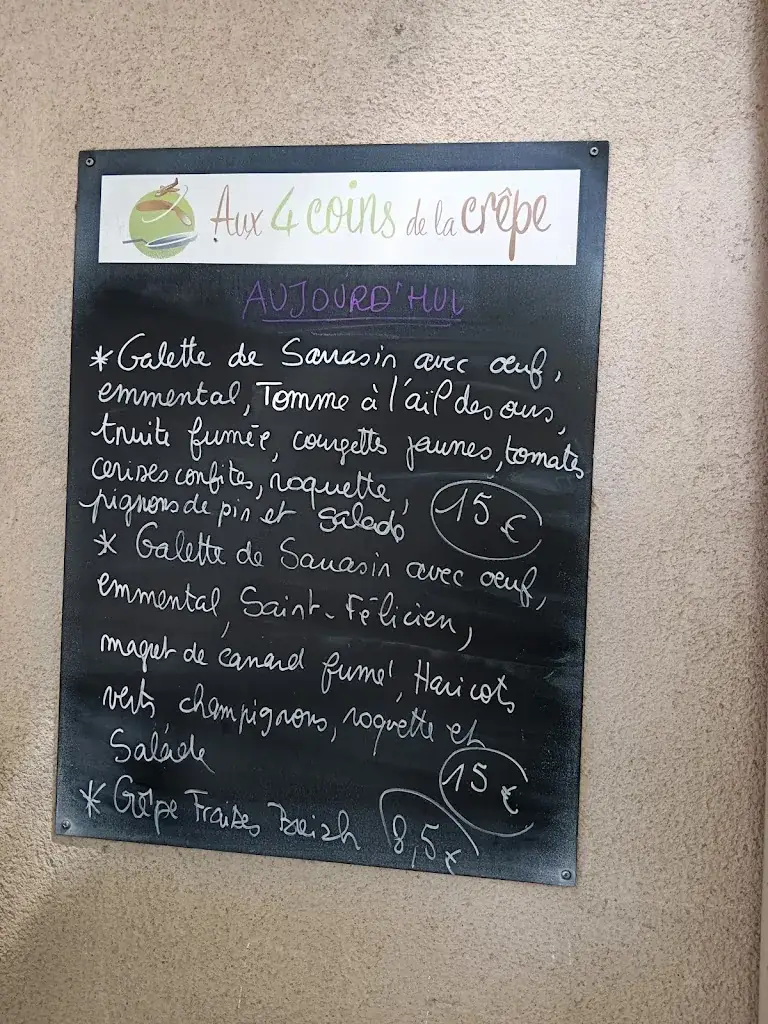 Aux 4 coins de la crêpe
AUJOURD'HUI
* Galette de Sarrasin avec œuf,
emmental, Tomme à l'ail des ours,
truite fumée, courgettes jaunes, tomates
cerises confites, roquette,
pignons de pin et salade 15 €
* Galette de Sarrasin avec œuf,
emmental, Saint-Félicien,
magret de canard fumé, Haricots
verts, champignons, roquette et
Salade 15 €
* Crêpe Fraises Breizh 8,5 €